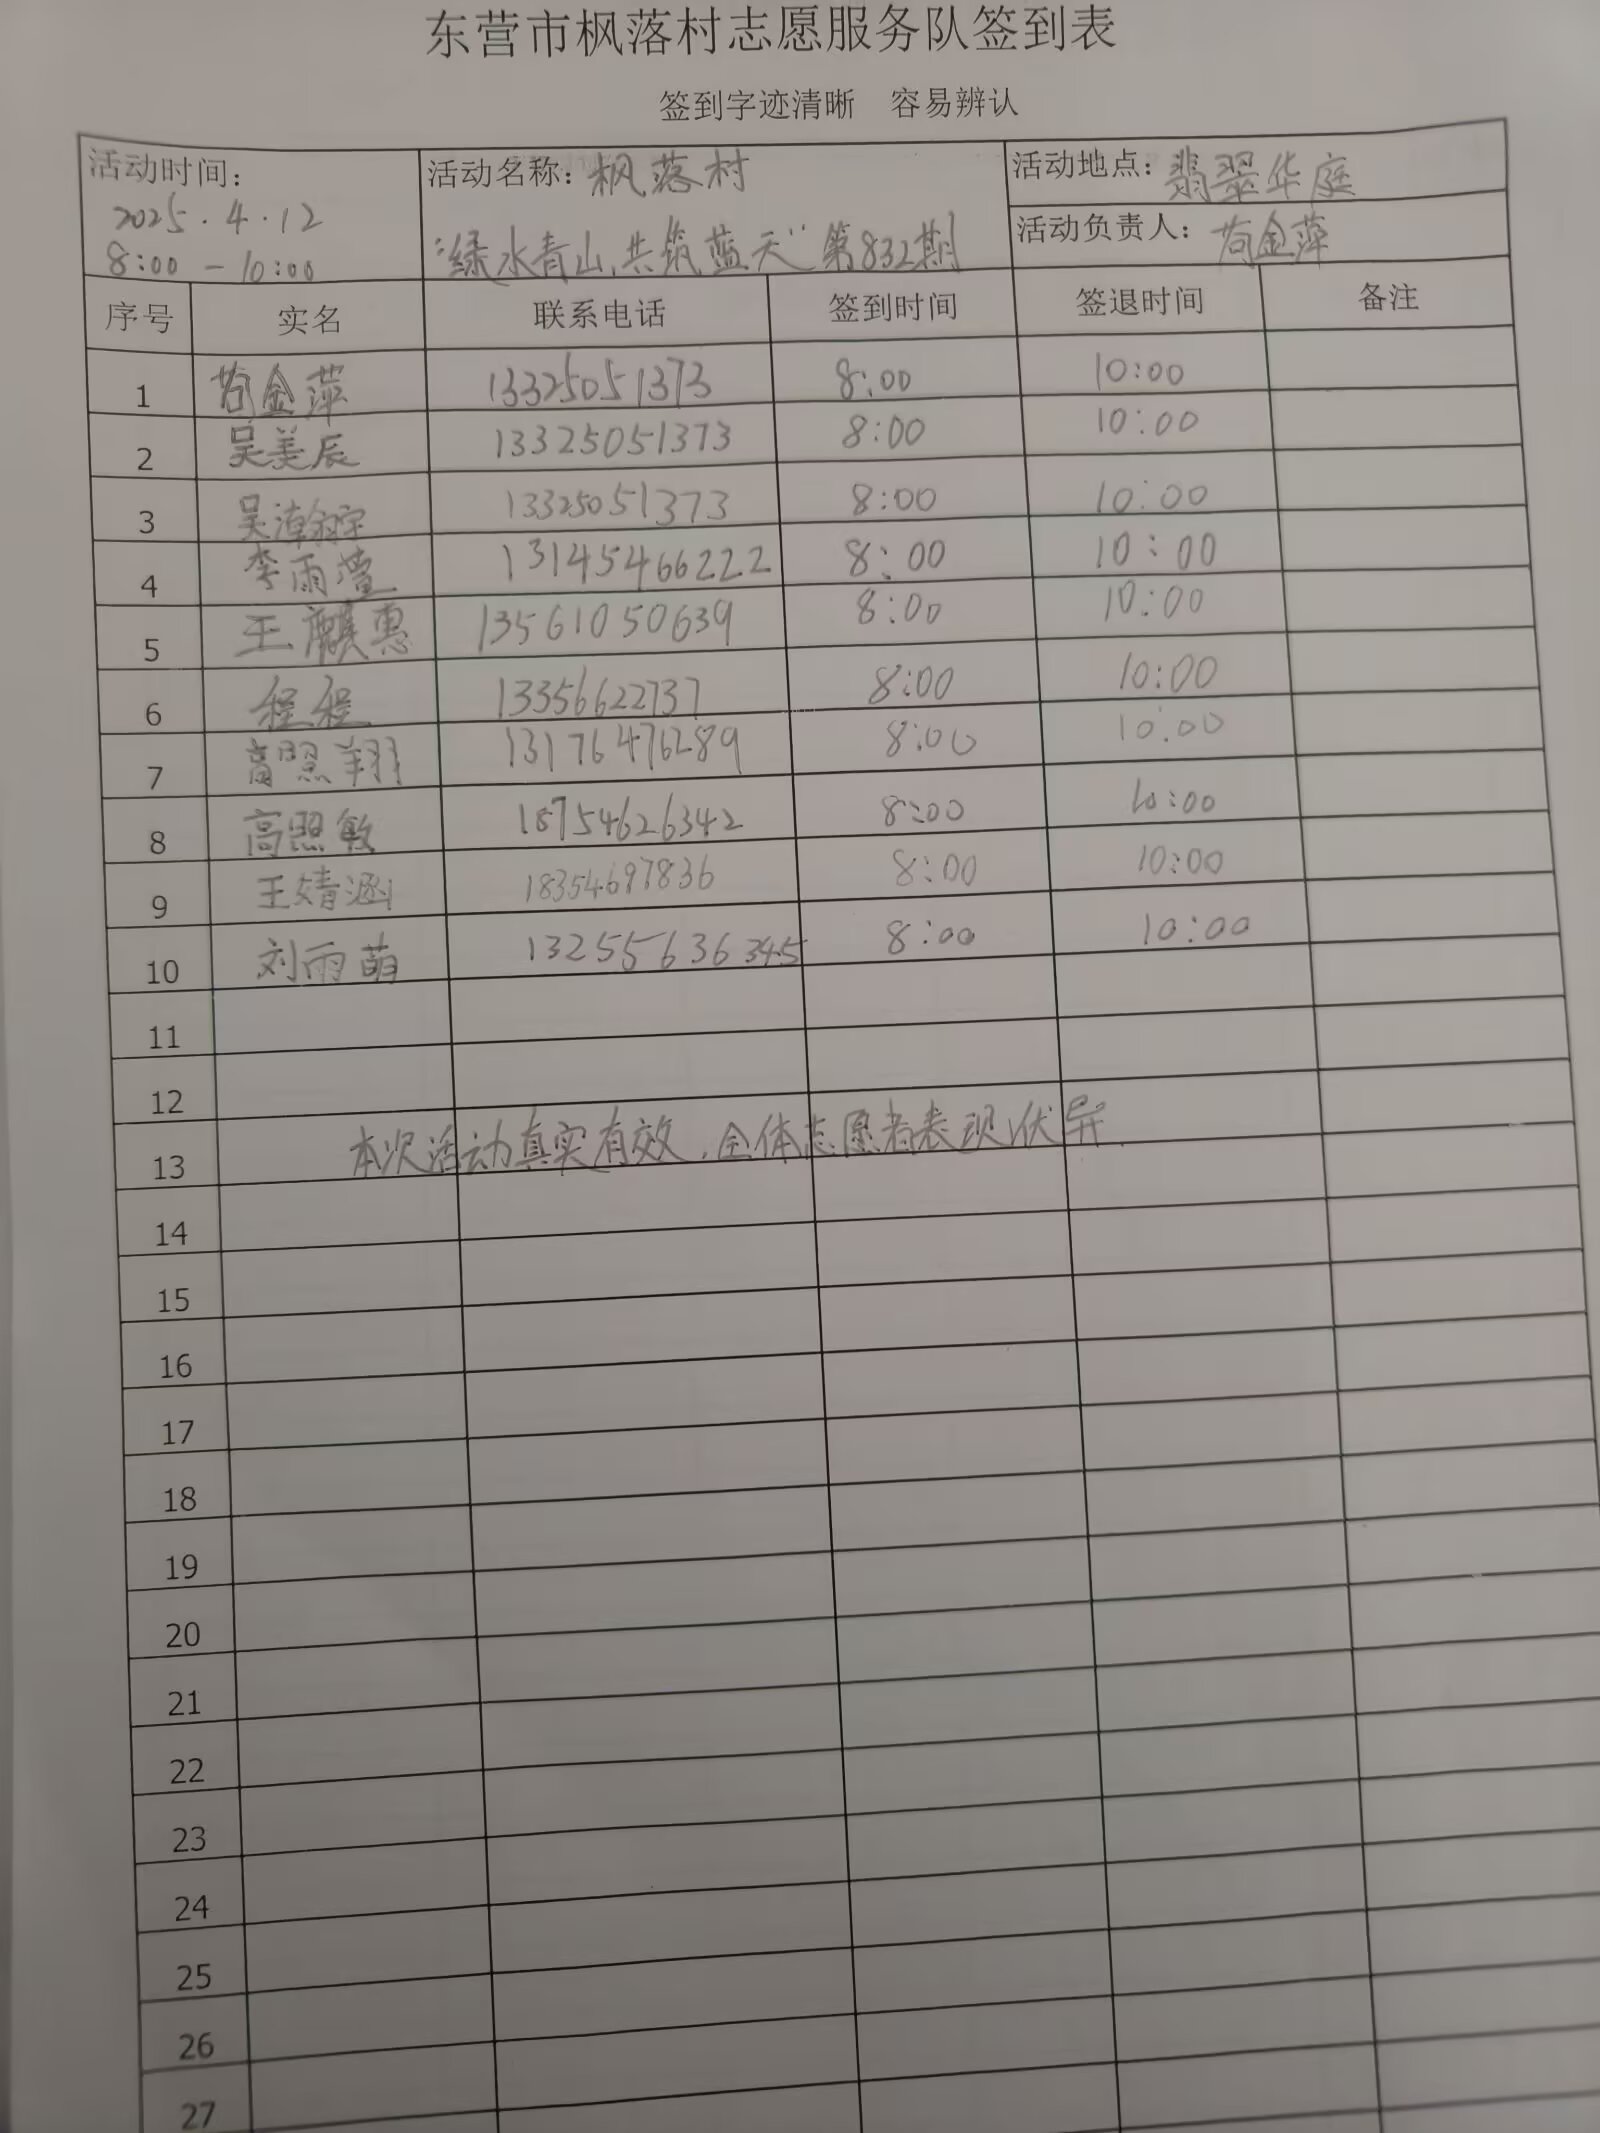 东营市枫落村志愿服务队签到表
签到字迹清晰 容易辨认
活动时间: 2025.4.12 8:00-10:00
活动名称: 枫落村 "绿水青山,共筑蓝天"第832期
活动地点: 翡翠华庭
活动负责人: 苟金萍
序号 实名 联系电话 签到时间 签退时间 备注
1 苟金萍 13325051373 8:00 10:00
2 吴美辰 13325051373 8:00 10:00
3 吴瀚宇 13325051373 8:00 10:00
4 李雨萱 13145466222 8:00 10:00
5 王麒惠 13561050639 8:00 10:00
6 程程 13356622737 8:00 10:00
7 高照翔 13176476289 8:00 10:00
8 高照敏 18754626342 8:00 10:00
9 王婧涵 18354697836 8:00 10:00
10 刘雨萌 13255636345 8:00 10:00
11
12
13 本次活动真实有效,全体志愿者表现优异
14
15
16
17
18
19
20
21
22
23
24
25
26
27